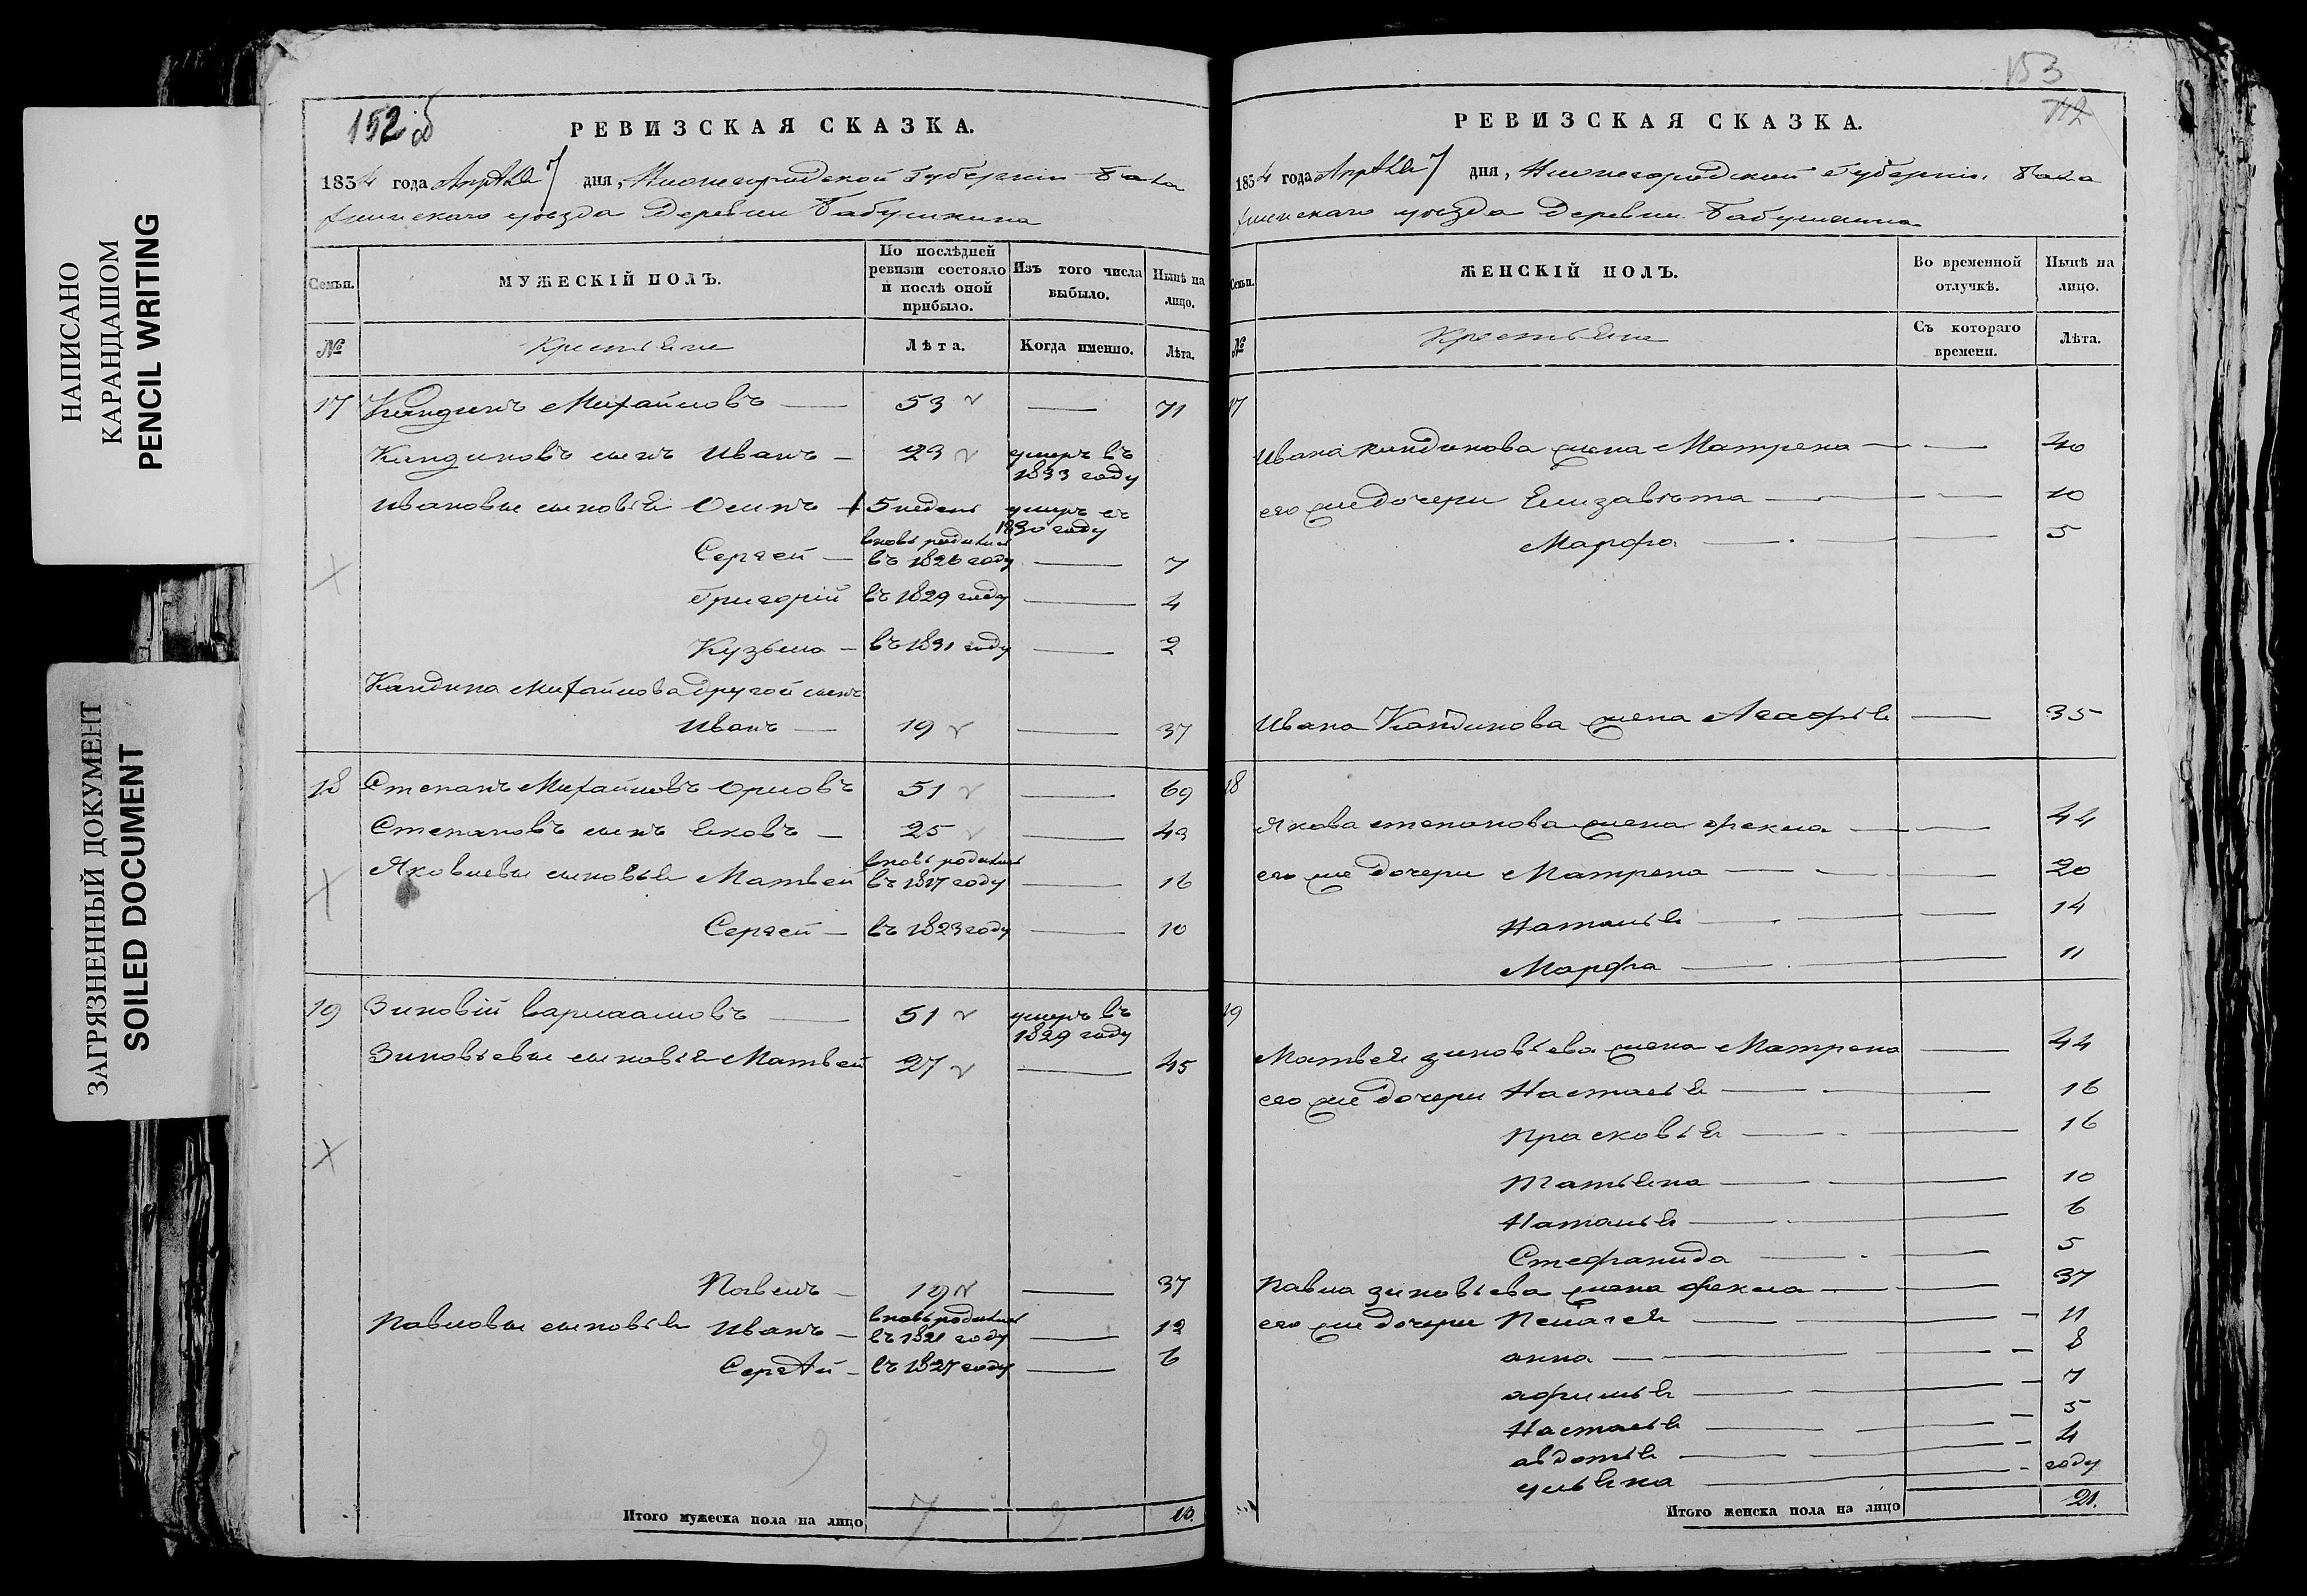 НАПИСАНО
КАРАНДАШОМ
PENCIL WRITING
ЗАГРЯЗНЕННЫЙ ДОКУМЕНТ
SOILED DOCUMENT
152 об
РЕВИЗСКАЯ СКАЗКА.
1834 года Апрѣля 7 дня, Нижегородской губернiи Бала
хнинскаго уезда Деревни Бабушкина
Семьи. МУЖЕСКІЙ ПОЛЪ. По послѣдней ревизіи состояло и послѣ оной прибыло. Изъ того числа выбыло. Нынѣ на лицо.
№ Крестьяне Лѣта. Когда именно. Лѣта.
17 Кандинъ Михайловъ — 53 — 71
Кандиновъ сынъ Иванъ — 23 умеръ въ 1833 году
Ивановы сыновья Осипъ — 5 недель умеръ въ 1830 году
Сергей — вновь родился въ 1826 году — 7
Григорій въ 1829 году — 4
Кузьма — въ 1831 году — 2
Кандина Михайлова другой сынъ
Иванъ — 19 — 37
18 Степанъ Михайловъ Орловъ 51 — 69
Степановъ сынъ Яковъ — 25 — 43
Яковлевы сыновья Матвей вновь родился въ 1817 году — 16
Сергей — въ 1823 году — 10
19 Зиновій Варлаамовъ — 51 умеръ въ 1829 году
Зиновьевы сыновья Матвей 27 — 45
Павелъ — 19 — 37
Павловы сыновья Иванъ — вновь родился въ 1821 году — 12
Сергѣй — въ 1827 году — 6
Итого мужеска пола на лицо 10.
153
РЕВИЗСКАЯ СКАЗКА.
1834 года Апрѣля 7 дня, Нижегородской губернiи. Бала
хнинскаго уезда Деревни Бабушкина
Семьи. ЖЕНСКІЙ ПОЛЪ. Во временной отлучкѣ. Нынѣ на лицо.
№ Крестьяне Съ котораго времени. Лѣта.
17
Ивана Кандинова жена Матрена — — 40
его же дочери Елизавета — — 10
Марфа — — 5
Ивана Кандинова жена Агафья — 35
18
Якова степанова жена Фекла — — 44
его же дочери Матрена — — 20
Наталья — — 14
Марфа — — 11
19
Матвея зиновьева жена Матрена — 44
его же дочери Настасья — — 16
Прасковья — — 16
Татьяна — — 10
Наталья — — 6
Стефанида — — 5
Павла зиновьева жена Фекла — — 37
его же дочери Пелагея — — 11
анна — — 8
афимья — — 7
Настасья — — 5
авдотья — — 4
ульяна — — году
Итого женска пола на лицо 21.